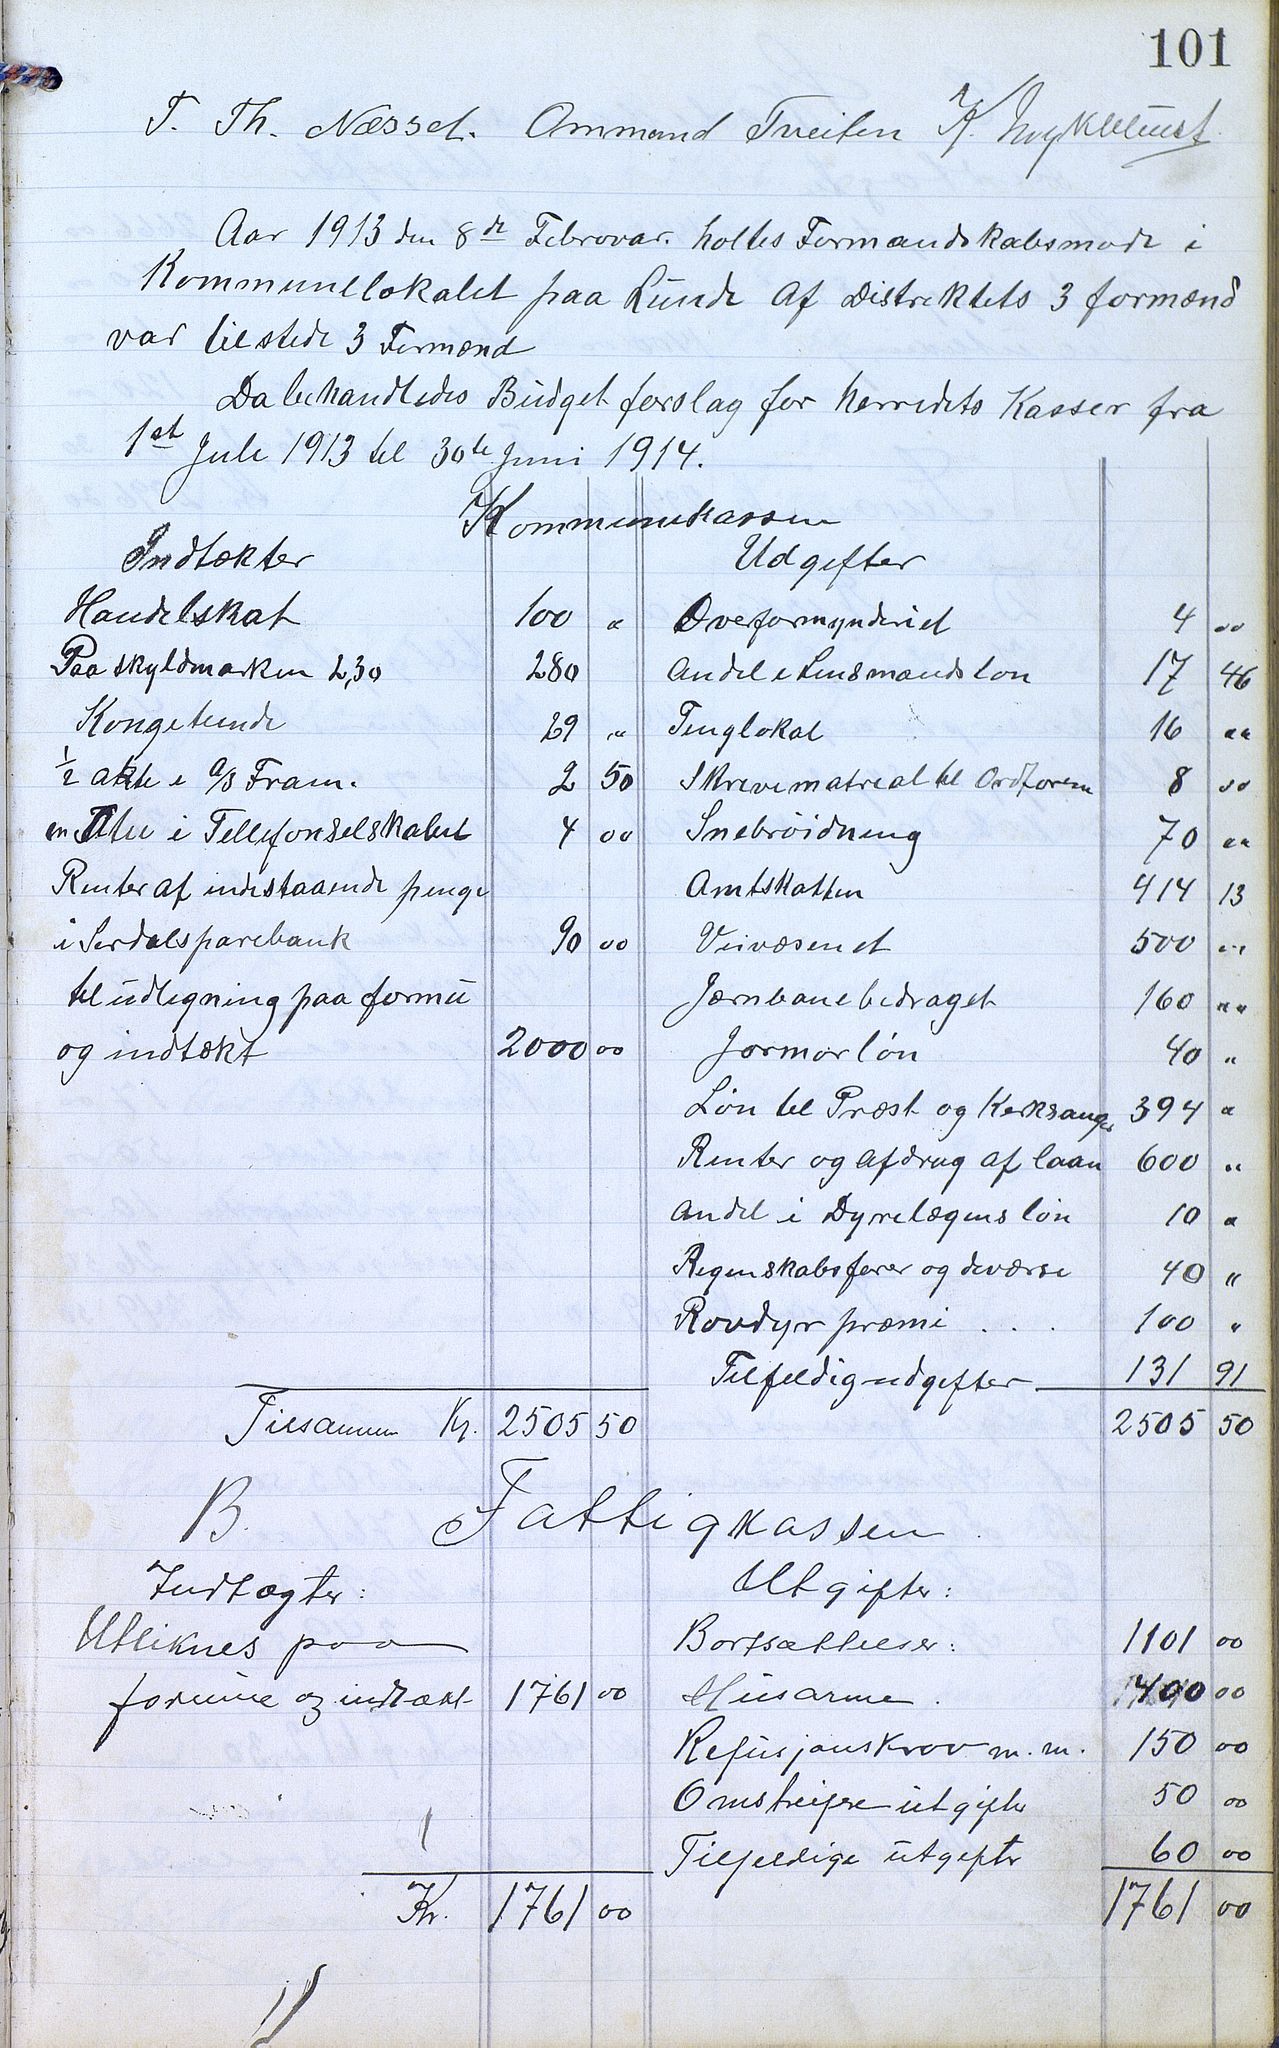 101
T. Th. Næsset. Ommund Tveiten K. Myklebust
Aar 1913 den 8de Febrovar. holtes Formandskabsmøde i
Kommunelokalet paa Lunde Af Distriktets 3 formænd
var tilstede 3 Formænd
Da behandledes Budget forslag for herredets Kasser fra
1st Juli 1913 til 30te Juni 1914.
Kommunekassen
Indtækter Udgifter
Handelskat 100 " Overformynderiet 4 00
Paa skyldmarken 2,30 280 Andel i Lensmandsløn 17 46
Kongetiende 29 " Tinglokal 16 00
1/2 aktie i A/S Fram. 2 50 Skrivematreal til Ordføren 8 00
en Aktie i Tellefonselskabet 4 00 Snebrøidning 70 00
Renter af indestaaende penge Amtskatten 414 13
i Serdalsparebank 90 00 Veivæsenet 500 00
til udligning paa formu Jærnbanebedraget 160 00
og indtækt 2000 00 Jormorløn 40 "
Løn til Præst og Kerksanger 394 "
Renter og afdrag af laan 600 "
Andel i Dyrelægens løn 10 "
Regenskabsfører og deværse 40 "
Rovdyr præmi . . . 100 "
Tilfeldig udgifter 131 91
Tilsammen Kr. 2505 50 2505 50
B. Fattigkassen
Indtægter: Utgifter:
Utliknes paa Bortsættelser: 1101 00
formue og indtækt 1761 00 Husarme . 400 00
Refusjonskrav m.m. 150 00
Omstreifere utgifter 50 00
Tilfeldige utgifter 60 00
Kr. 1761 00 1761 00